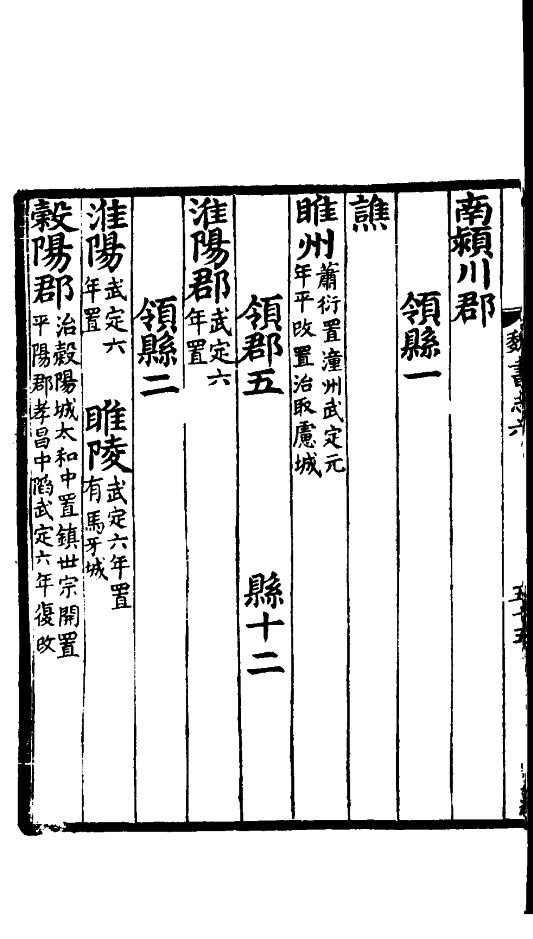 南頴川郡
領縣一
譙
睢州蕭衍置潼州武定元年平改置治取慮城
領郡五 縣十二
淮陽郡武定六年置
領縣二
淮陽武定六年置 睢陵武定六年置有馬牙城
穀陽郡治穀陽城太和中置鎮世宗開置平陽郡孝昌中陷武定六年復改
魏書志六
五十五